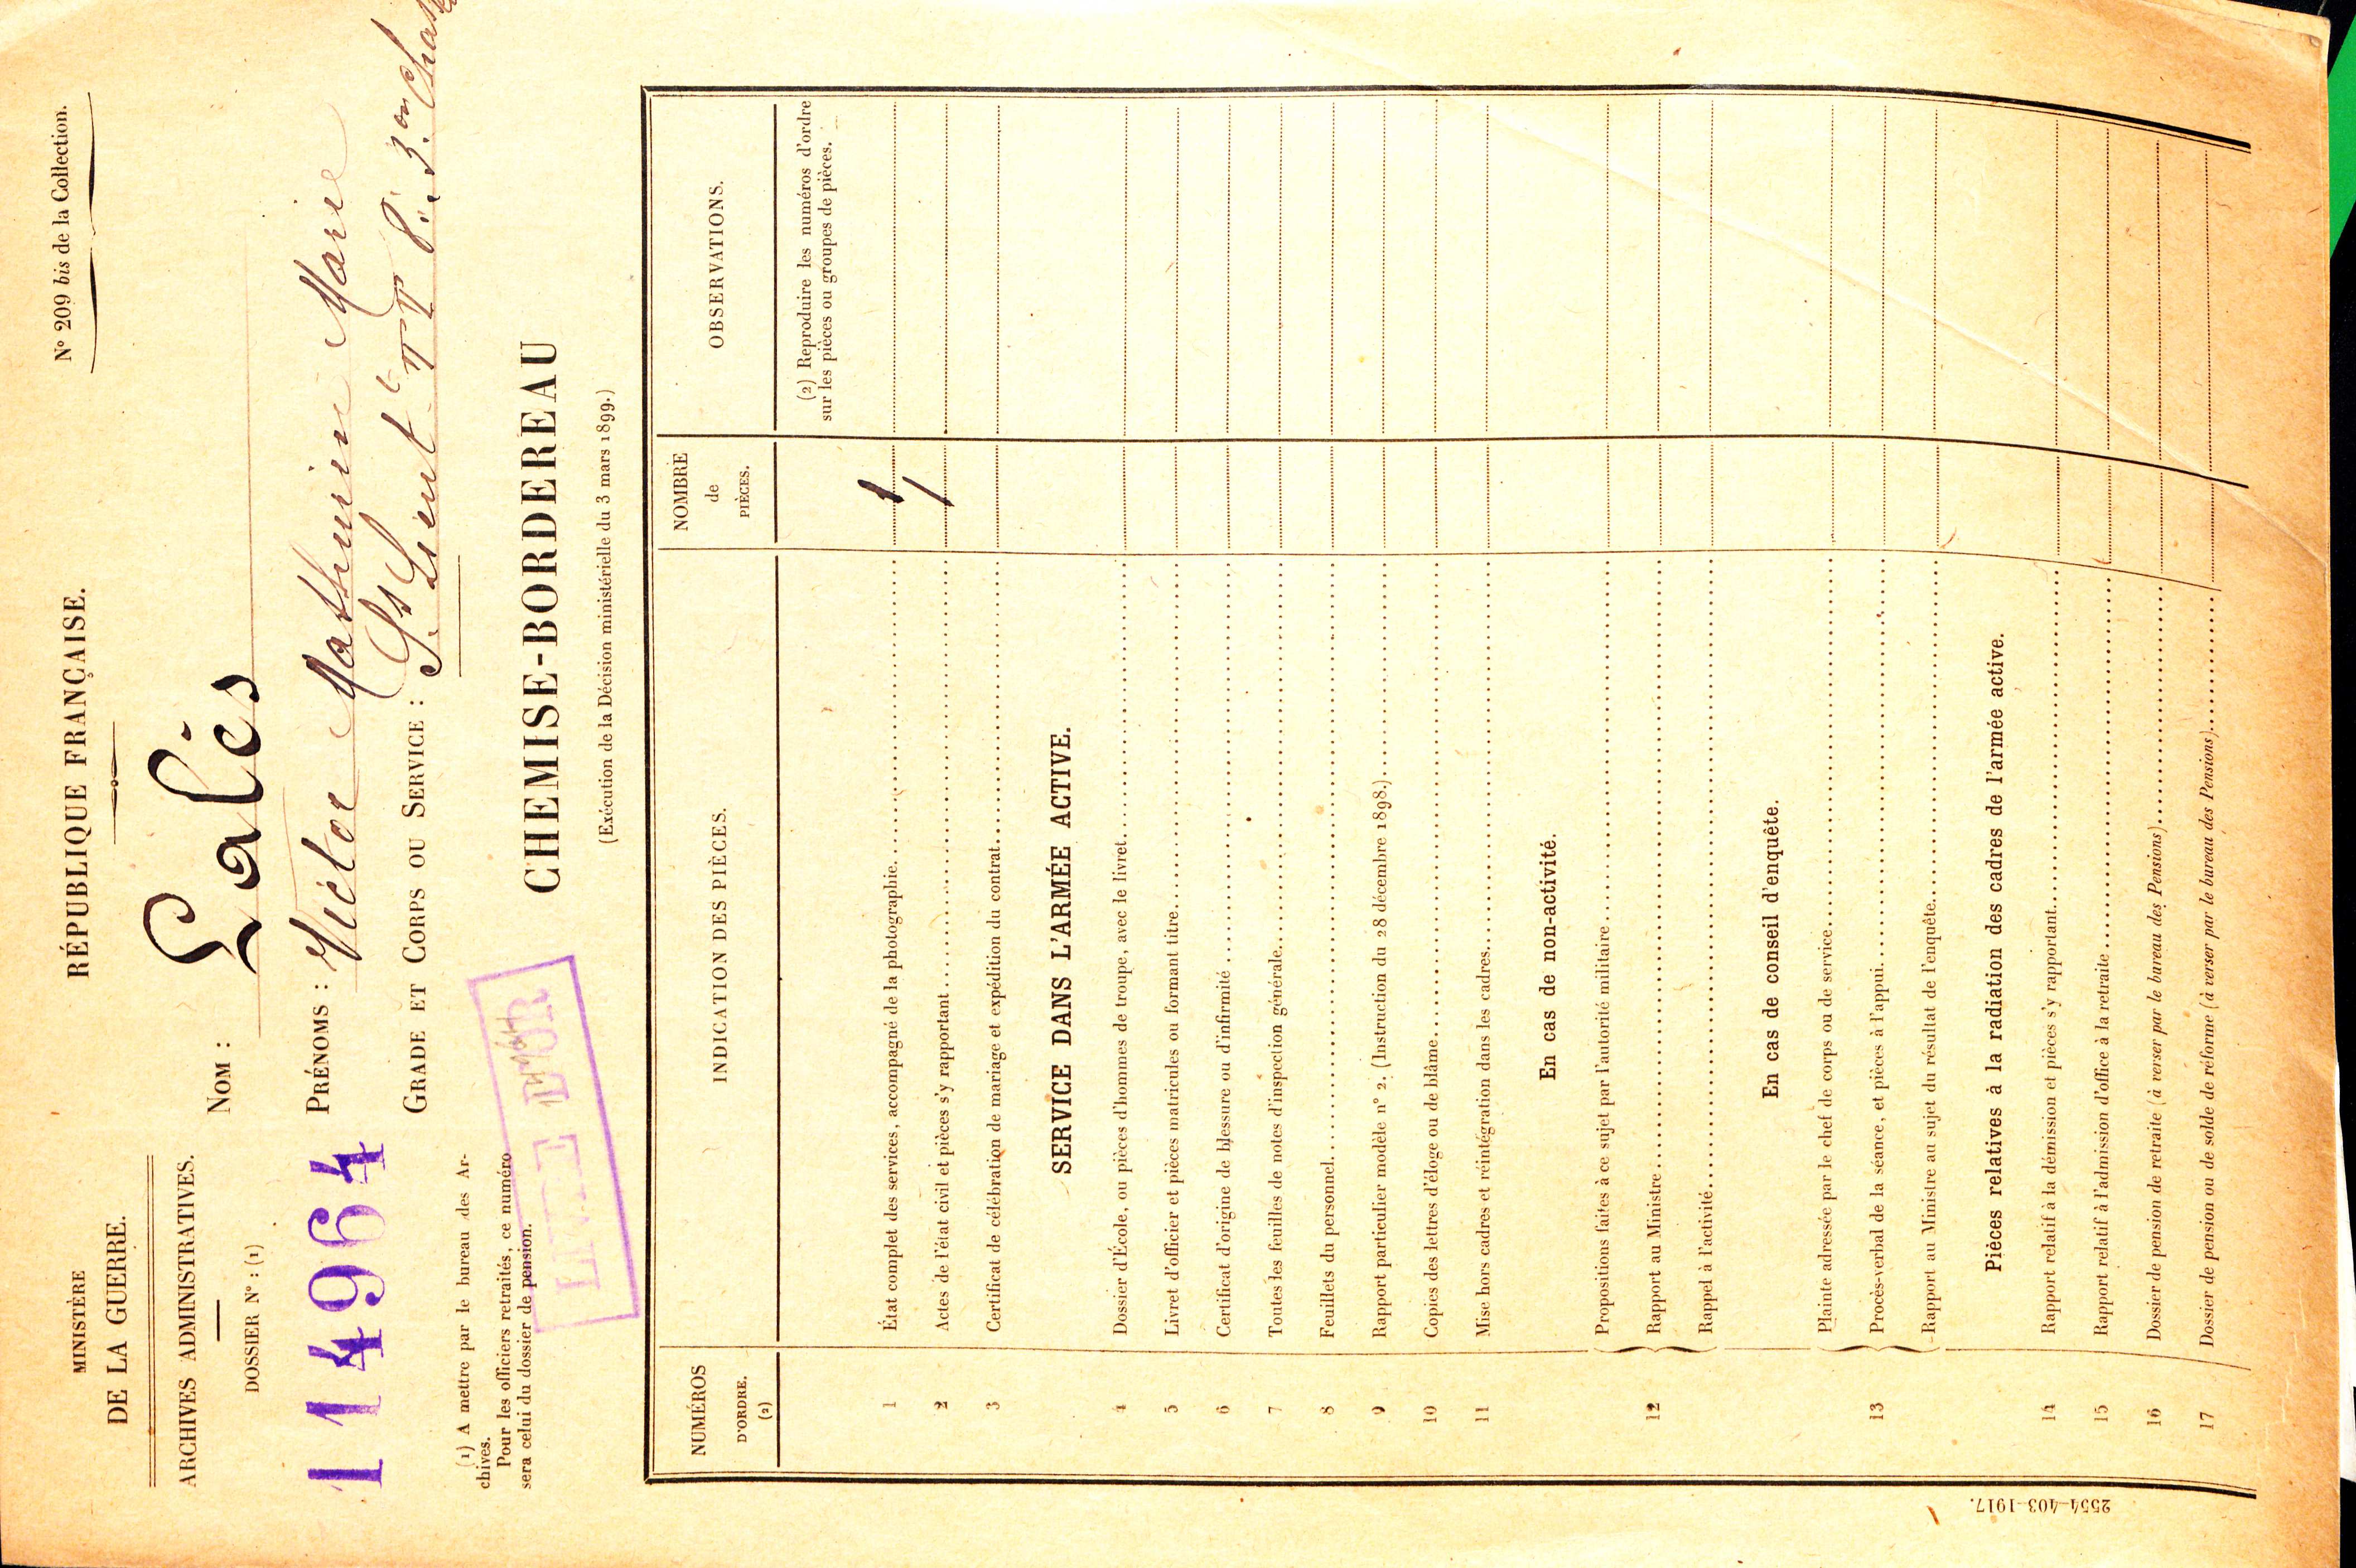 MINISTÈRE
DE LA GUERRE.
ARCHIVES ADMINISTRATIVES.
DOSSIER N° : (1)
114964
(1) A mettre par le bureau des Ar-
chives.
Pour les officiers retraités, ce numéro
sera celui du dossier de pension.
RÉPUBLIQUE FRANÇAISE.
N° 209 bis de la Collection.
NOM : Lalès
PRÉNOMS : Victor Mathurin Marie
GRADE ET CORPS OU SERVICE : S/s Lieut
LIVRE D'OR
CHEMISE-BORDEREAU
(Exécution de la Décision ministérielle du 3 mars 1899.)
NUMÉROS D'ORDRE. (2)
INDICATION DES PIÈCES.
NOMBRE de PIÈCES.
OBSERVATIONS.
(2) Reproduire les numéros d'ordre
sur les pièces ou groupes de pièces.
1 État complet des services, accompagné de la photographie. 1
2 Actes de l'état civil et pièces s'y rapportant 1
3 Certificat de célébration de mariage et expédition du contrat.
SERVICE DANS L'ARMÉE ACTIVE.
4 Dossier d'École, ou pièces d'hommes de troupe, avec le livret.
5 Livret d'officier et pièces matricules ou formant titre.
6 Certificat d'origine de blessure ou d'infirmité
7 Toutes les feuilles de notes d'inspection générale.
8 Feuillets du personnel.
9 Rapport particulier modèle n° 2. (Instruction du 28 décembre 1898.)
10 Copies des lettres d'éloge ou de blâme.
11 Mise hors cadres et réintégration dans les cadres.
En cas de non-activité.
12 Propositions faites à ce sujet par l'autorité militaire
Rapport au Ministre
Rappel à l'activité
En cas de conseil d'enquête.
13 Plainte adressée par le chef de corps ou de service.
Procès-verbal de la séance, et pièces à l'appui.
Rapport au Ministre au sujet du résultat de l'enquête.
Pièces relatives à la radiation des cadres de l'armée active.
14 Rapport relatif à la démission et pièces s'y rapportant.
15 Rapport relatif à l'admission d'office à la retraite
16 Dossier de pension de retraite (à verser par le bureau des Pensions)
17 Dossier de pension ou de solde de réforme (à verser par le bureau des Pensions)
2554-403-1917.